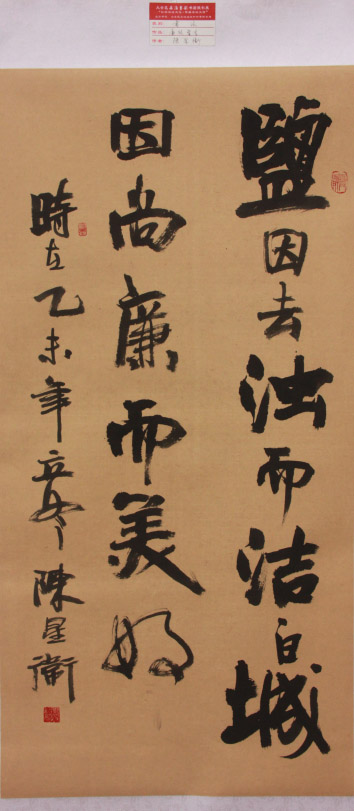 鹽因去浊而洁白城
因尚廉而美好
時在乙未年立冬陳星衛